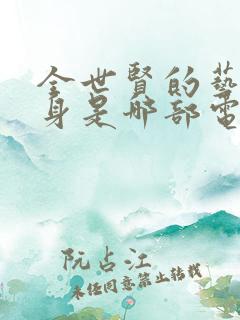 全世賢的藝
身是哪部電
阮占江
未经同意禁止转载